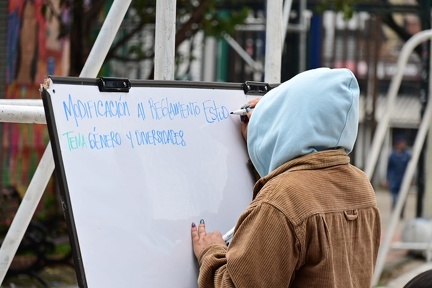 MODIFICACIÓN AL REGLAMENTO
TEMA GÉNERO Y DIVERSIDADES